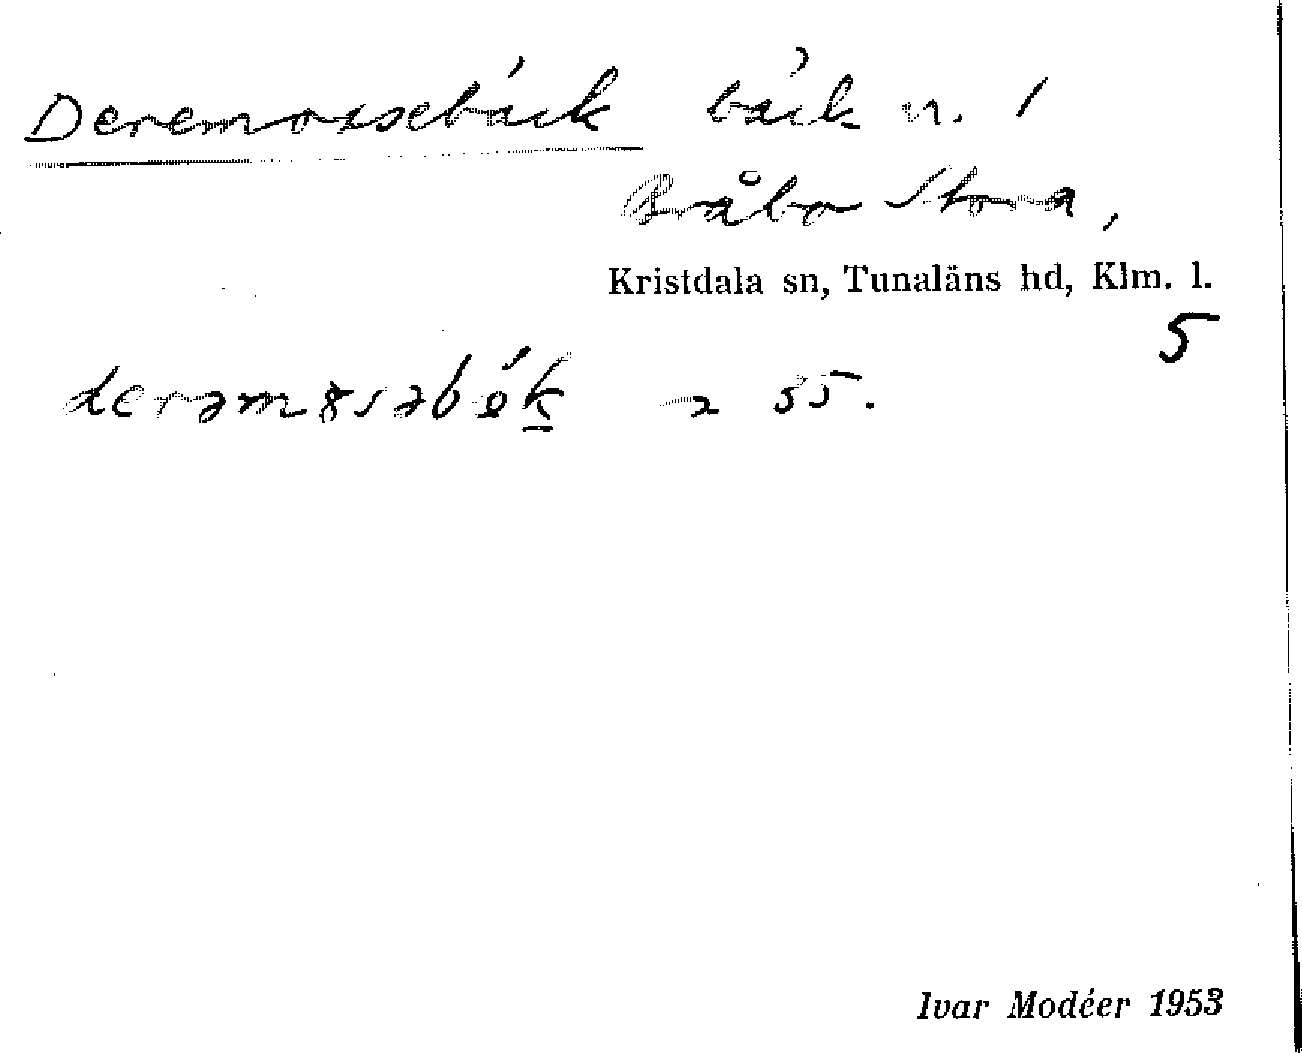 Deremossebäck bäck n. 1
Bråbo Stora,
Kristdala sn, Tunaläns hd, Klm. l.
5
55.
Ivar Modéer 1953